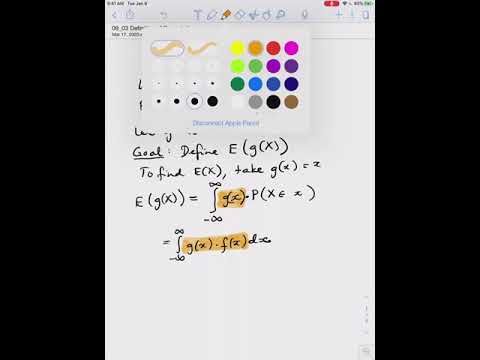 9:41 AM Tue Jan 9
Mar 17, 2020
Disconnect Apple Pencil
Goal: Define E(g(X))
To find E(X), take g(x) = x
E(g(X)) = ∫_{-∞}^{∞} g(x) · P(X ∈ x)
= ∫_{-∞}^{∞} g(x) · f(x) dx